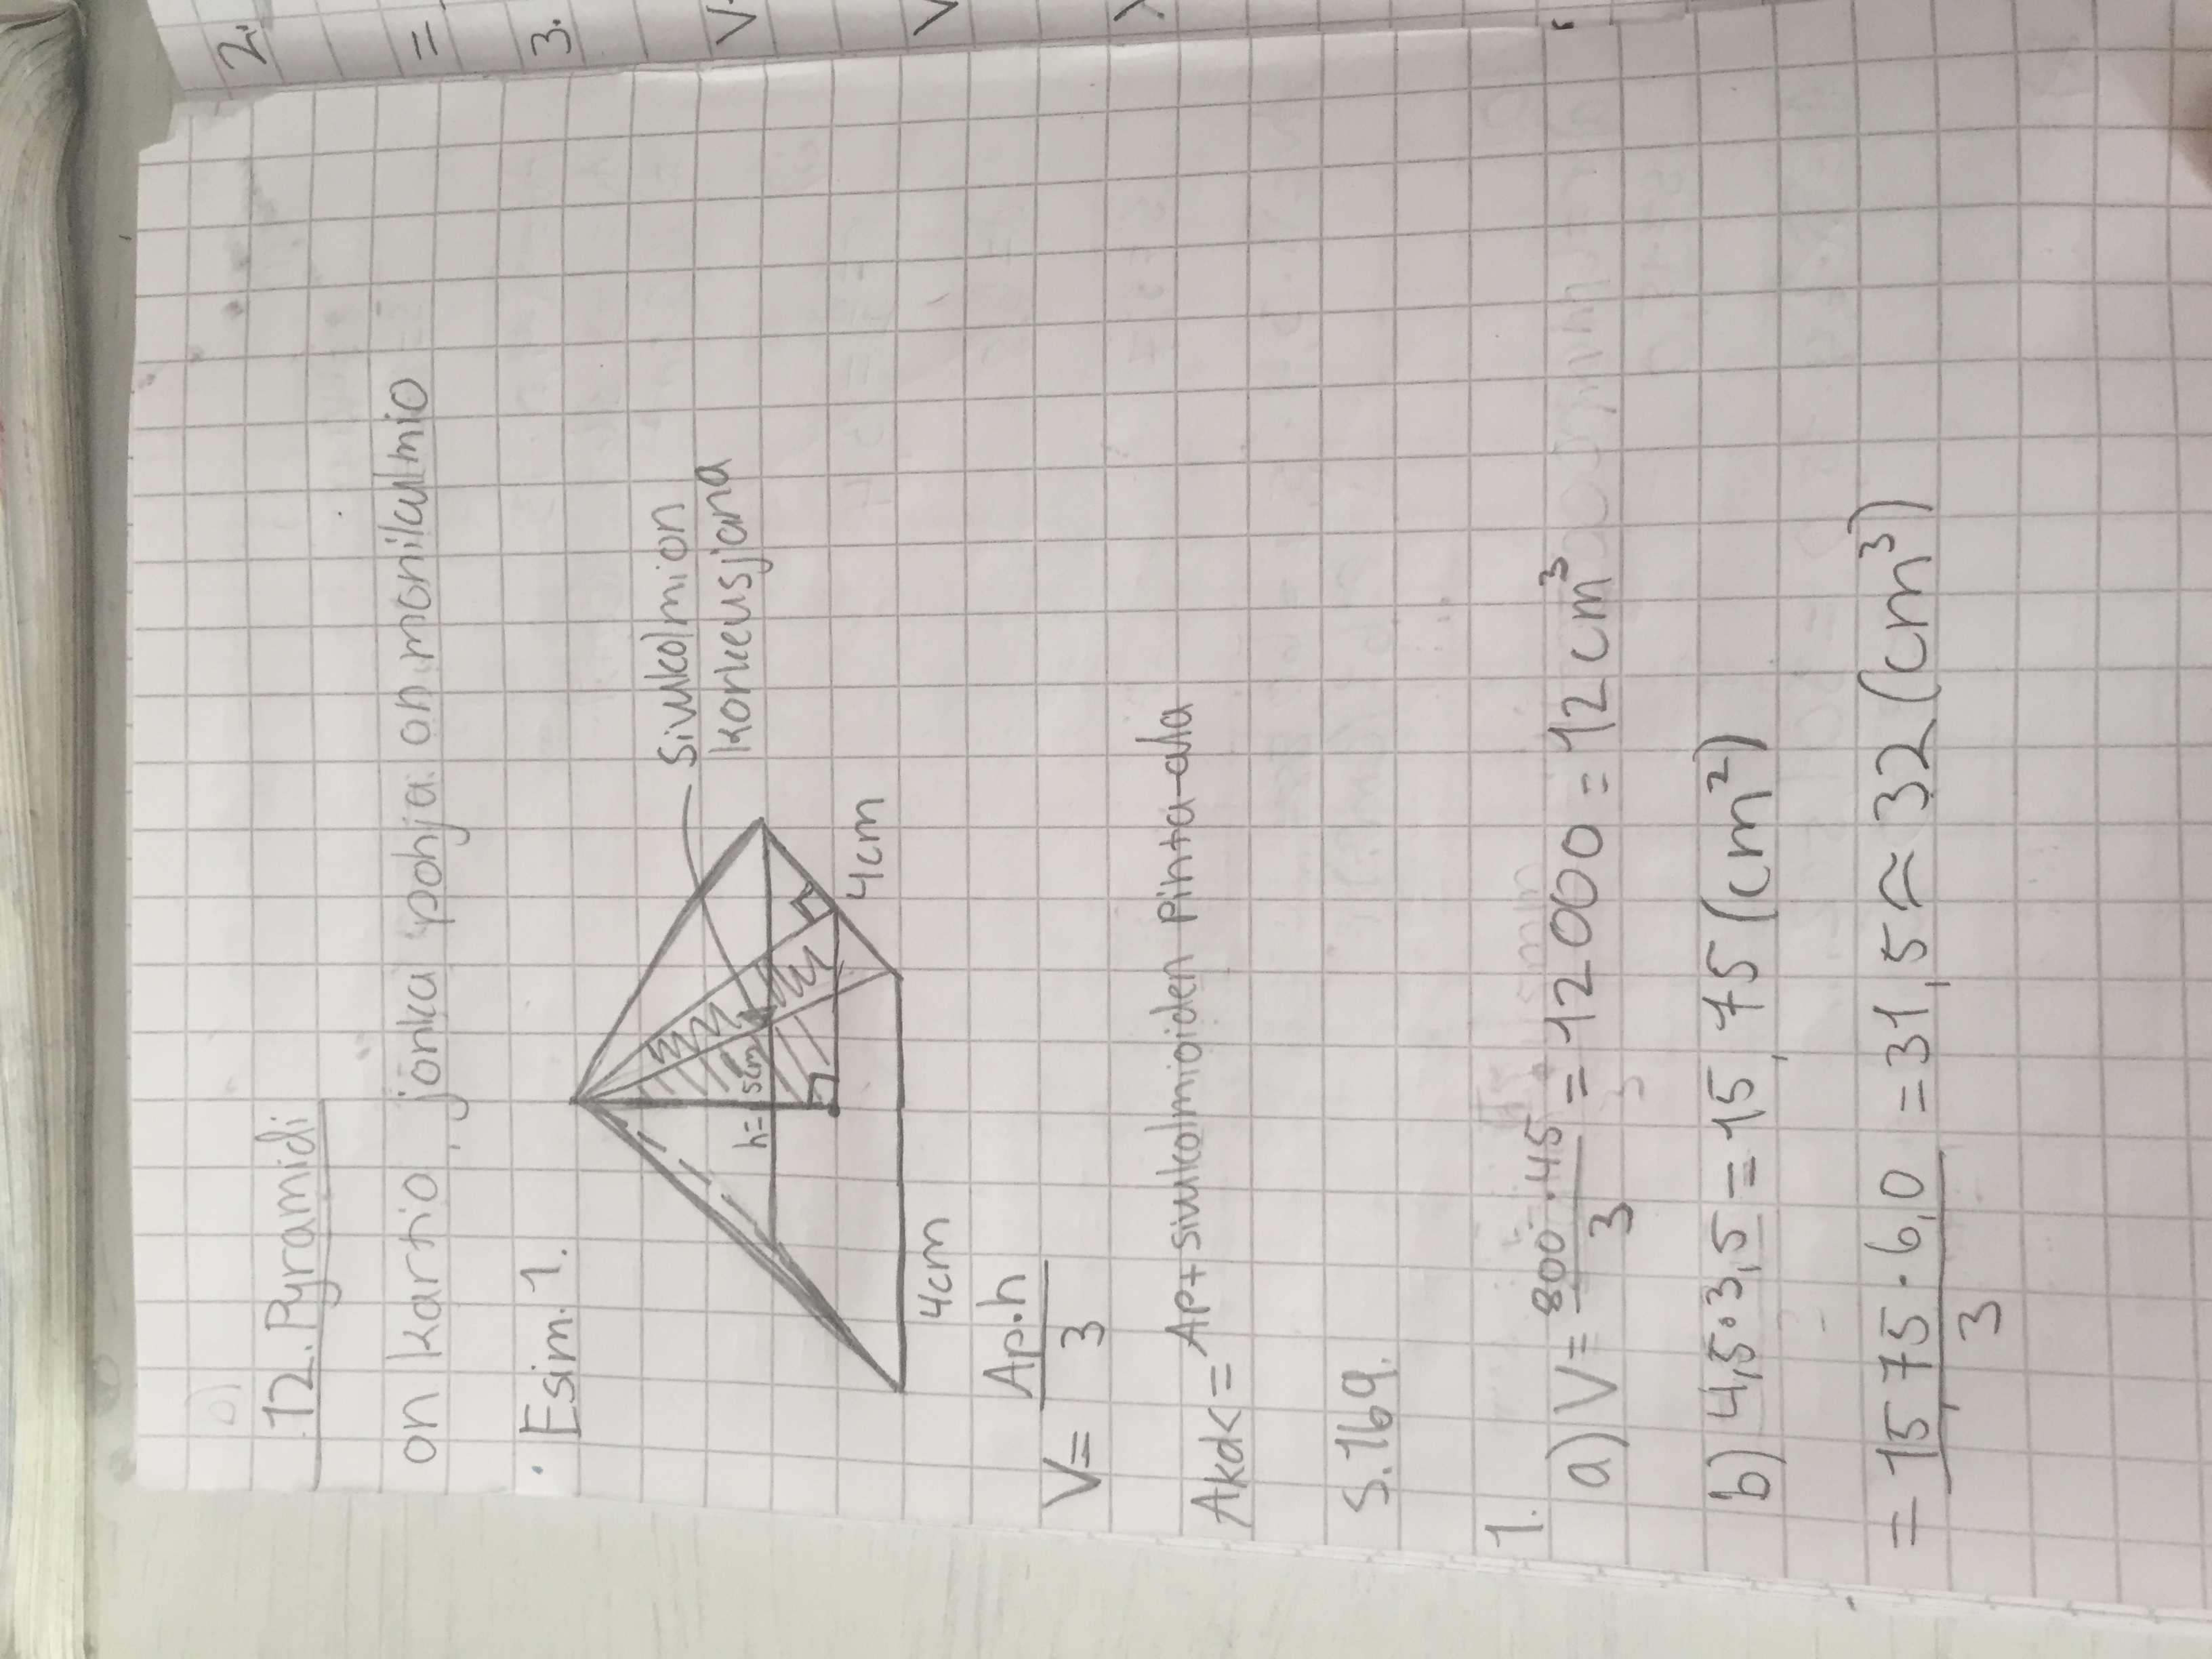 12. Pyramidi
on kartio, jonka pohja on monikulmio
Esim. 1.
sivukolmion
korkeusjana
h=5cm
4cm
4cm
V= Ap.h
3
Akd<= Ap+sivukolmioiden pinta-ala
S.169.
1.
a) V= 800·45 = 12000 = 12cm³
3
b) 4,5·3,5 = 15,75 (cm²)
= 15,75·6,0 = 31,5 ≈ 32 (cm³)
3
2.
=
3.
V
V